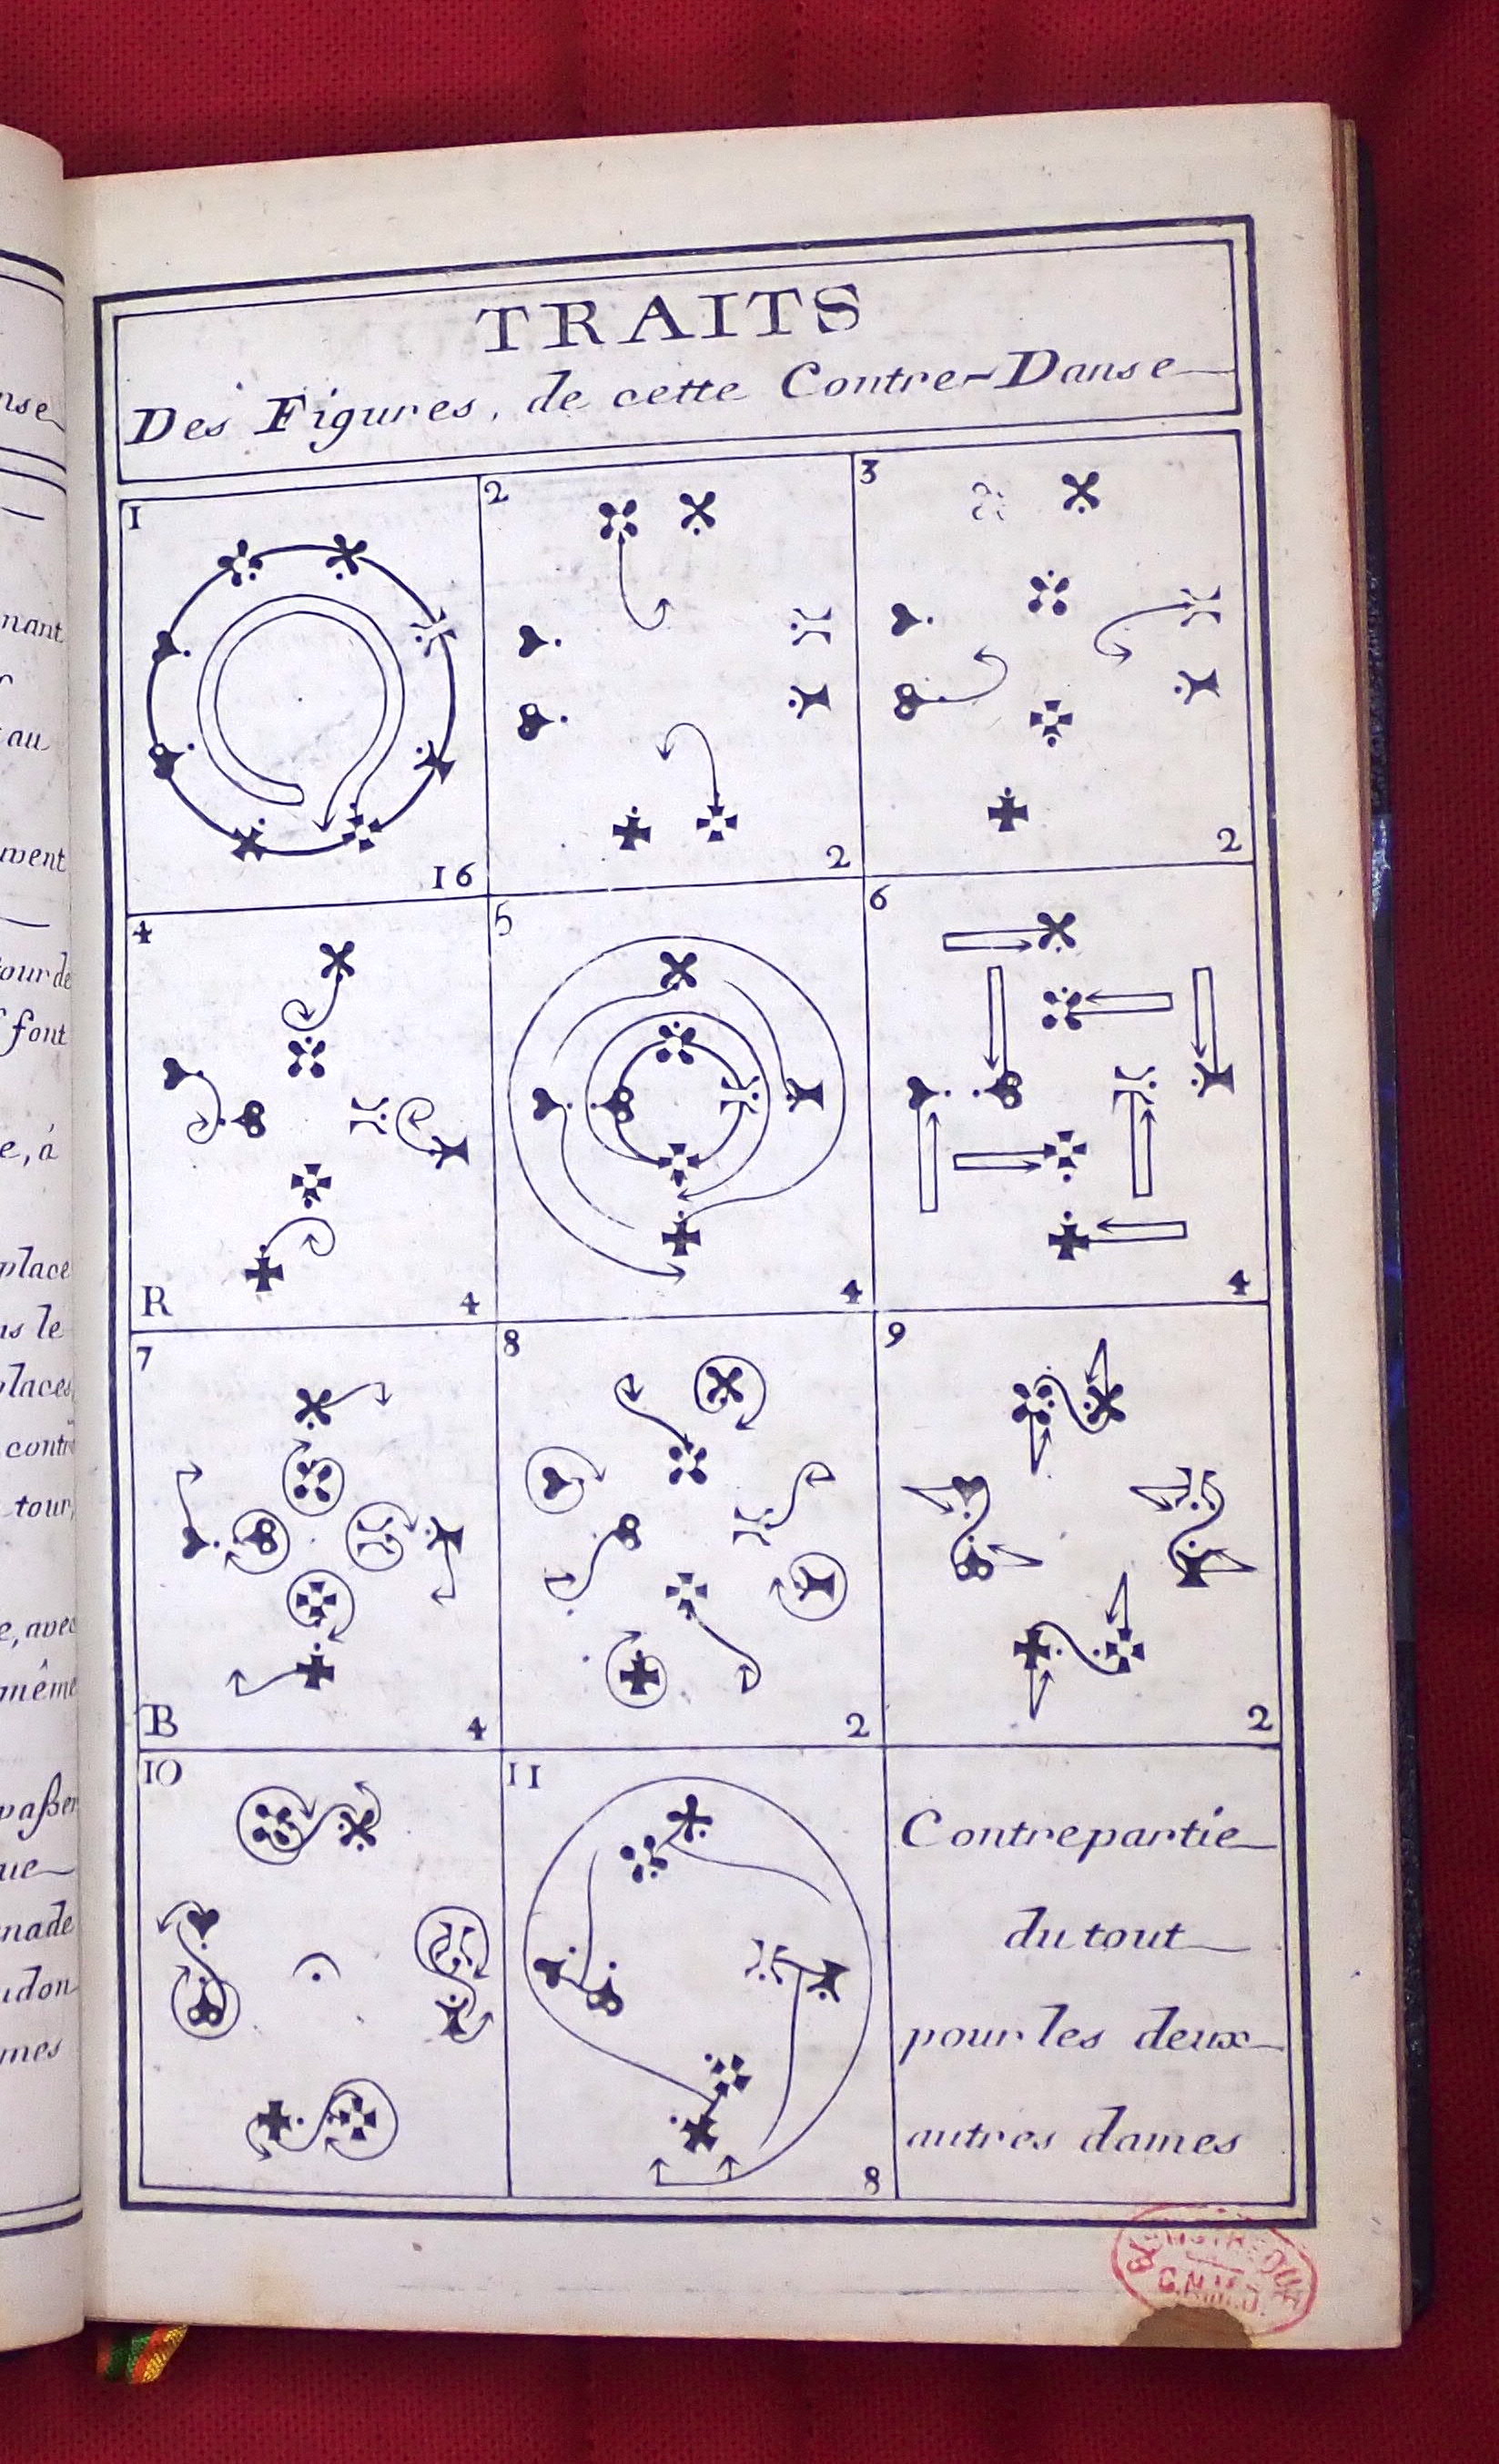 nse
nant
au
ment
tour de
font
e, à
place
ns le
places
contr
tour,
e, avec
même
paßer
que
nade
mes
TRAITS
Des Figures, de cette Contre-Danse
1
16
2
2
3
2
4
R
4
5
4
6
4
7
B
4
8
2
9
2
10
11
8
Contrepartie
du tout
pour les deux
autres dames